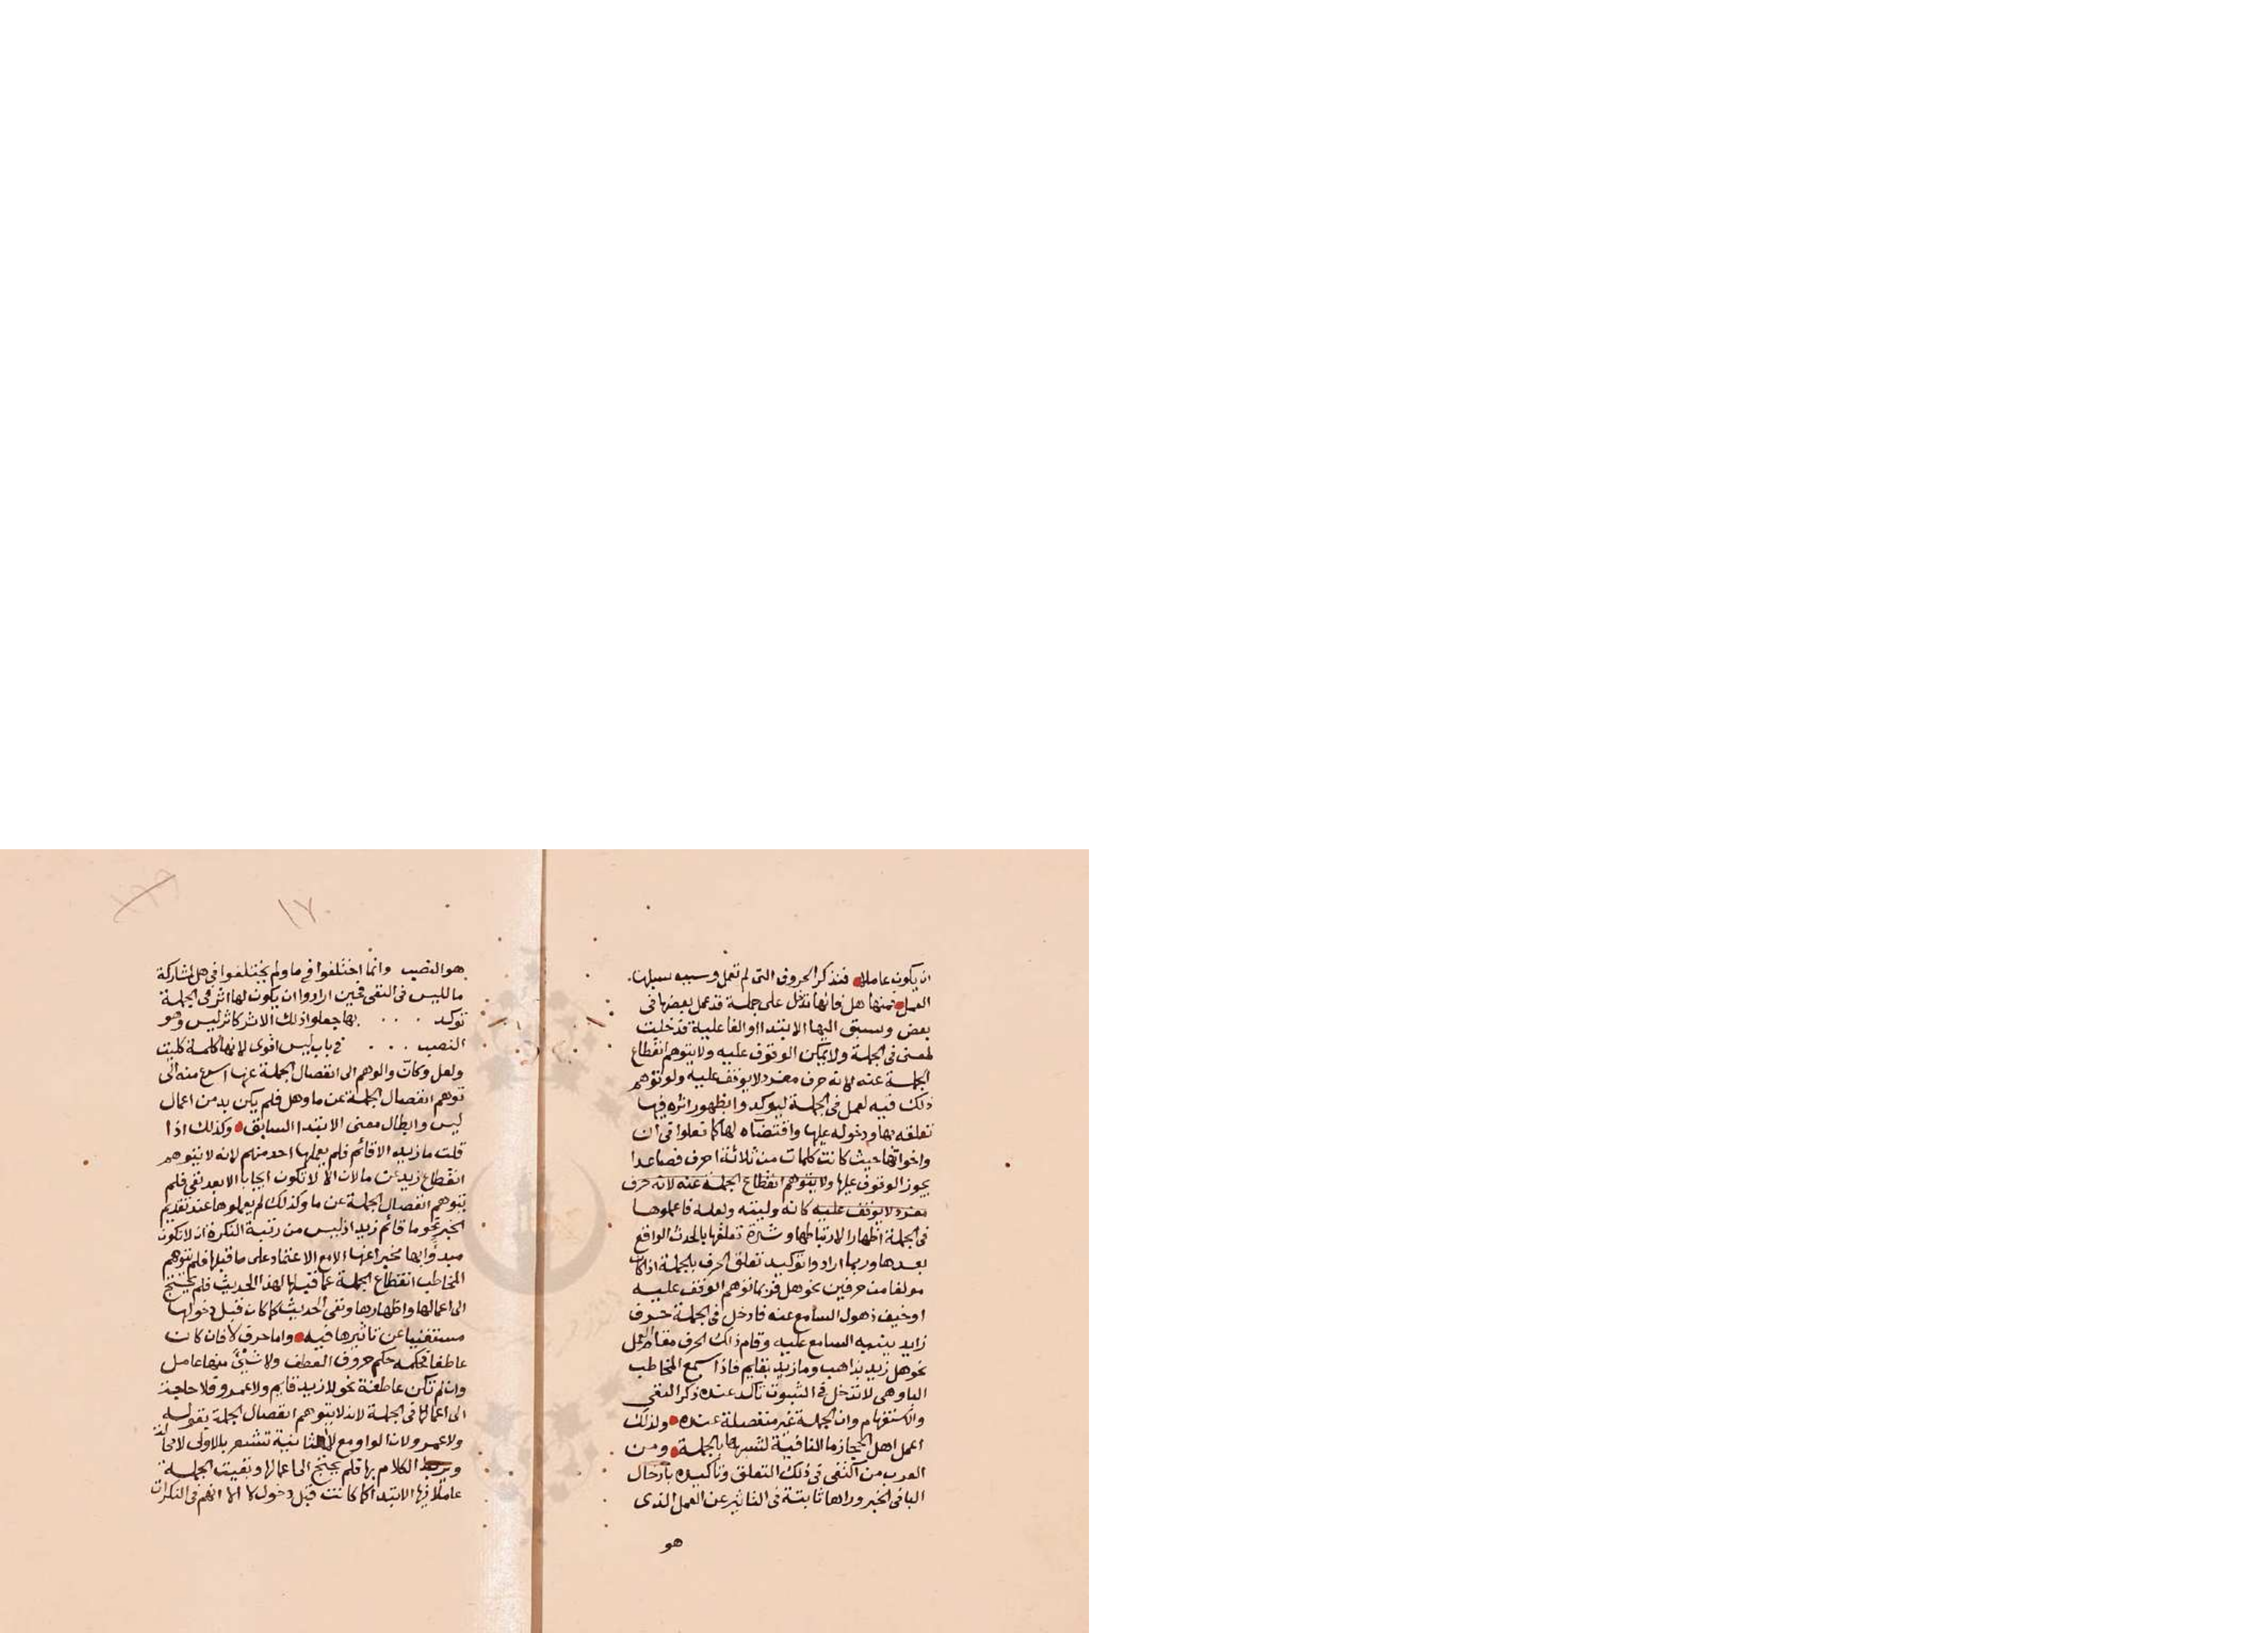 ان يكون عاملا فنذكر الحروف التى لم تعمل وسببه سبيلها
العمل فمنها هل فانها تدخل على جملة قد عمل بعضها فى
بعض وسبق اليها الابتدا او الفاعلية فدخلت
لمعنى فى الجملة ولا يمكن الوقوف عليه ولا يتوهم انقطاع
الجملة عنه لانه حرف مفرد لا يوقف عليه ولو توهم
ذلك فيه لعمل فى الجملة ليوكدوا بظهور اثره فيها
تعلقه بها ودخوله عليها واقتضاه لها كما فعلوا فى ان
واخواتها حيث كانت كلمات من ثلاثة احرف فصاعدا
يجوز الوقوف عليها ولا يتوهم انقطاع الجملة عنه لانه حرف
مفرد لا يوقف عليه كانه وليته ولعله فاعملوها
فى الجملة اظهارا لارتباطها وشدة تعلقها بالحدث الواقع
بعدها وربما ارادوا توكيد تعلق الحرف بالجملة اذا كان
مولفا من حرفين نحو هل فربما توهم الوقف عليه
او خيف ذهول السامع عنه فادخل فى الجملة حرف
زايد ينبه السامع عليه وقام ذلك الحرف مقام العمل
نحو هل زيد بذاهب وما زيد بقايم فاذا سمع المخاطب
البا وهى لا تدخل فى الثبوت تاكد عنده ذكر النفى
والاستفهام وان الجملة غير منفصلة عنده ولذلك
اعمل اهل الحجاز ما النافية لشبهها بالجملة ومن
العرب من اكتفى فى ذلك التعلق وتاكيده بادخال
البا فى الخبر وراها ثابتة فى التاثير عن العمل الذى
هو
١٧٠
هو النصب وانما اختلفوا فى ما ولم يختلفوا فى هل لمشاركة
ما لليس فى النفى فحين ارادوا ان يكون لها اثر فى الجملة
توكد . . . بها جعلوا ذلك الاثر كاثر ليس وهو
النصب . . . فى باب ليس اقوى لانها كلمة كليت
ولعل وكان والوهم الى انفصال الجملة عنها اسرع منه الى
توهم انفصال الجملة عن ما وهل فلم يكن بد من اعمال
ليس وابطال معنى الابتدا السابق وكذلك اذا
قلت ما زيد الا قائم فلم يعملها احد منهم لانه لا يتوهم
انقطاع زيد عن ما لان الا لا تكون ايجابا الا بعد نفى فلم
يتوهم انفصال الجملة عن ما وكذلك لم يعملوها عند تقديم
الخبر نحو ما قائم زيد اذ ليس من رتبة النكرة ان لا تكون
مبدوا بها مخبرا عنها الا مع الاعتماد على ما قبلها فلم يتوهم
المخاطب انقطاع الجملة عما قبلها لهذا الحديث فلم يحتج
الى اعمالها واظهارها وتفى الحديث كما كان قبل دخولها
مستغنيا عن تاثيرها فيه واما حرف لا فان كان
عاطفا فحكمه حكم حروف العطف ولا شئ منها عامل
وان لم تكن عاطفة نحو لا زيد قايم ولا عمرو فلا حاجة
الى اعمالها فى الجملة لانه لا يتوهم انفصال الجملة بقوله
ولا عمرو لان الواو مع لا الثانية تشعر بالاولى لا محالة
وتربط الكلام بها فلم يحتج الى اعمالها وبقيت الجملة
عاملا فيها الابتدا كما كانت قبل دخول لا الا انهم فى النكرات